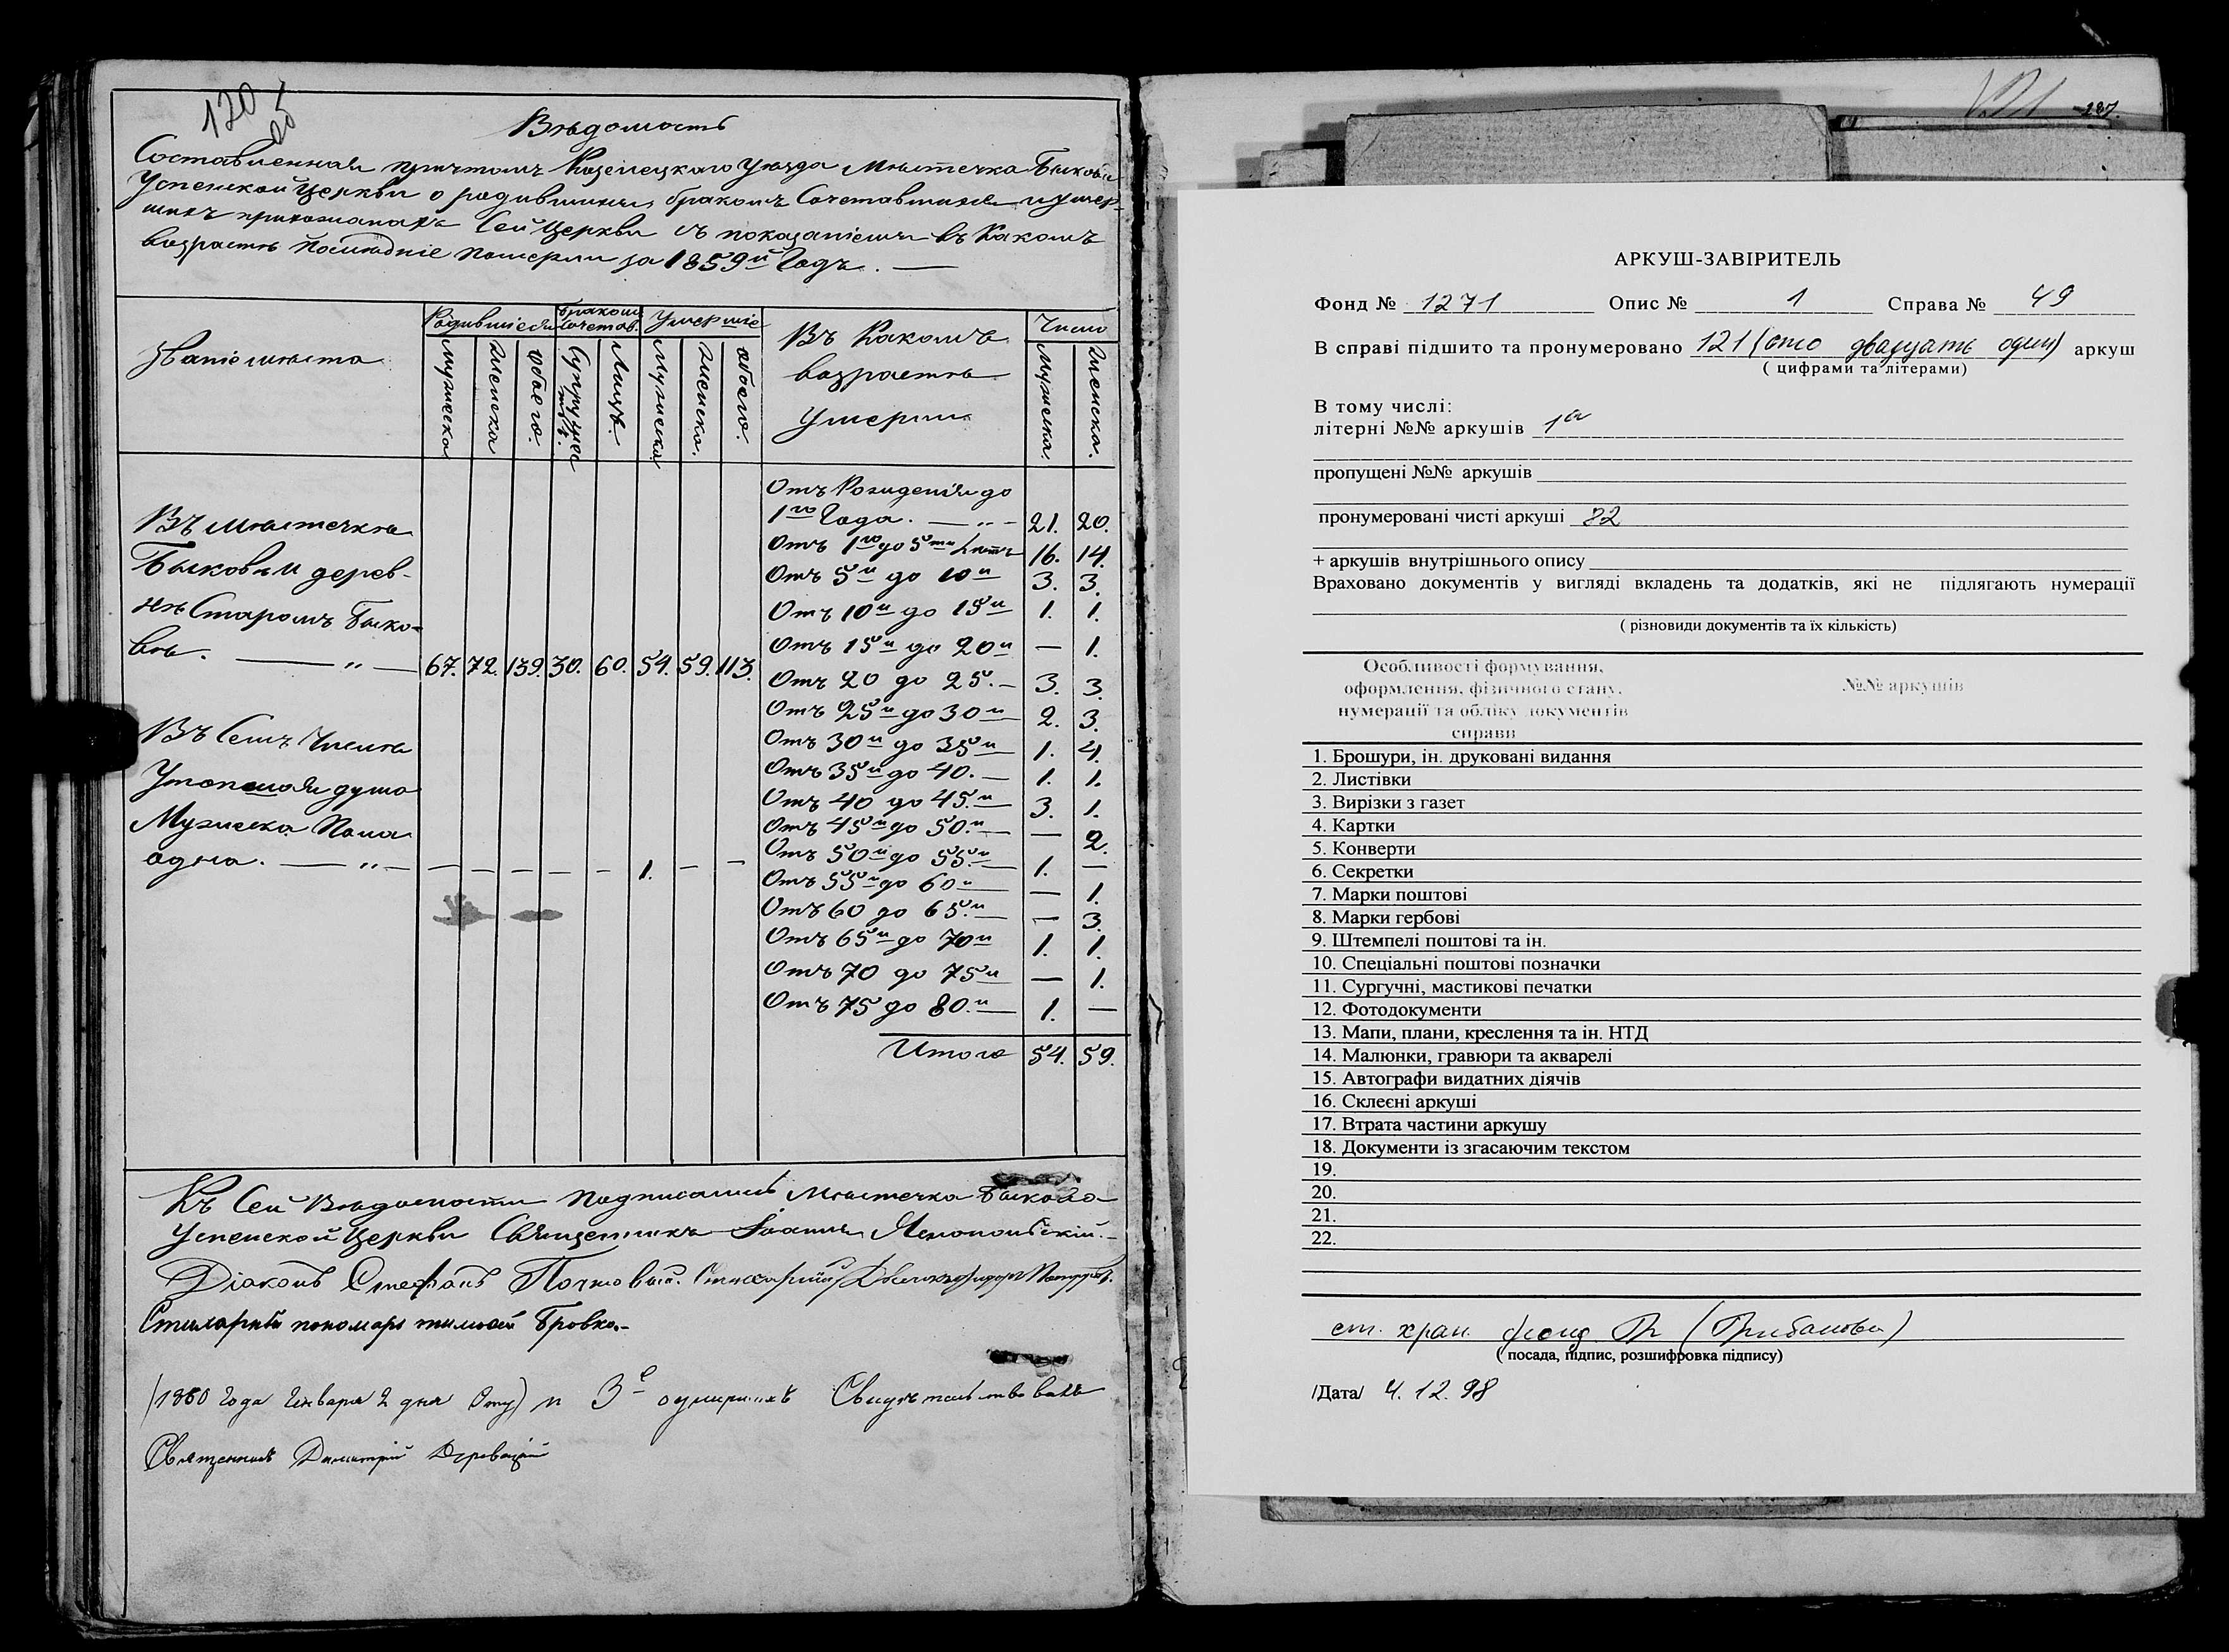 120
об
Вѣдомость
Составленная причтомъ Козелецкаго уѣзда Мѣстечка Быкова
Успенской Церкви о родившихся, бракомъ Сочетавшихся и умер-
шихъ прихожанахъ Сей Церкви съ показаніемъ въ Какомъ
возрастѣ послѣдніе померли за 1859й Годъ. —
Званіе мѣста
Родившіеся
бракомъ Сочетав.
Умершіе
Въ Какомъ возрастѣ Умерли
Число
Мужеска Женска обоего. Супружес Лицъ. Мужеска Женска. обоего. Мужеска. Женска.
Въ мѣстечкѣ
Быковѣ и дерев-
нѣ Старомъ Быко-
вѣ. — „ — 67. 72. 139. 30. 60. 54. 59. 113.
Въ Семъ Числѣ
Утопшая душа
Мужеска Пола
одна. — „ — — — — — — 1. — —
Отъ Рожденія до
1го Года. — „ — 21. 20.
Отъ 1го до 5ти Лѣтъ 16. 14.
Отъ 5и до 10и 3. 3.
Отъ 10и до 15и 1. 1.
Отъ 15и до 20и — 1.
Отъ 20 до 25. — 3. 3.
Отъ 25и до 30и 2. 3.
Отъ 30и до 35и 1. 4.
Отъ 35и до 40. — 1. 1.
Отъ 40 до 45.и 3. 1.
Отъ 45и до 50.и — 2.
Отъ 50и до 55.и 1. —
Отъ 55и до 60и — 1.
Отъ 60 до 65.и — 3.
Отъ 65и до 70и 1. 1.
Отъ 70 до 75и — 1.
Отъ 75 до 80.и 1. —
Итого 54. 59.
Къ Сей Вѣдомости подписались Мѣстечка Быкова
Успенской Церкви Священникъ Іоаннъ Ясnопольскій.
Діаконъ Стефанъ Почтовый. Стихарный
Стихарный пономарь тимофей Бровко.-
1860 Года Января 2 дня и 3е Свидѣтельствовалъ
Священникъ Димитрій
121 127.
АРКУШ-ЗАВІРИТЕЛЬ
Фонд № 1271 Опис № 1 Справа № 49
В справі підшито та пронумеровано 121 (сто двадцать один) аркуш
( цифрами та літерами)
В тому числі:
літерні №№ аркушів 1а
пропущені №№ аркушів
пронумеровані чисті аркуші 82
+ аркушів внутрішнього опису
Враховано документів у вигляді вкладень та додатків, які не підлягають нумерації
( різновиди документів та їх кількість)
Особливості формування,
оформлення, фізичного стану,
нумерації та обліку документів
справи
№№ аркушів
1. Брошури, ін. друковані видання
2. Листівки
3. Вирізки з газет
4. Картки
5. Конверти
6. Секретки
7. Марки поштові
8. Марки гербові
9. Штемпелі поштові та ін.
10. Спеціальні поштові позначки
11. Сургучні, мастикові печатки
12. Фотодокументи
13. Мапи, плани, креслення та ін. НТД
14. Малюнки, гравюри та акварелі
15. Автографи видатних діячів
16. Склеєні аркуші
17. Втрата частини аркушу
18. Документи із згасаючим текстом
19.
20.
21.
22.
ст. хран. фонд. (Грибанова)
( посада, підпис, розшифровка підпису)
/Дата/ 4. 12. 98